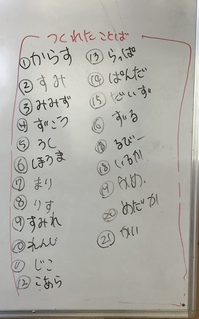 つくれた ことば
①からす
②すみ
③みみず
④ずこう
⑤うし
⑥しまうま
⑦まり
⑧りす
⑨すみれ
⑩れんじ
⑪じこ
⑫こあら
⑬らっぱ
⑭ぱんだ
⑮だいず
⑯ずる
⑰るびー
⑱いるか
⑲かめ
⑳めだか
㉑かい